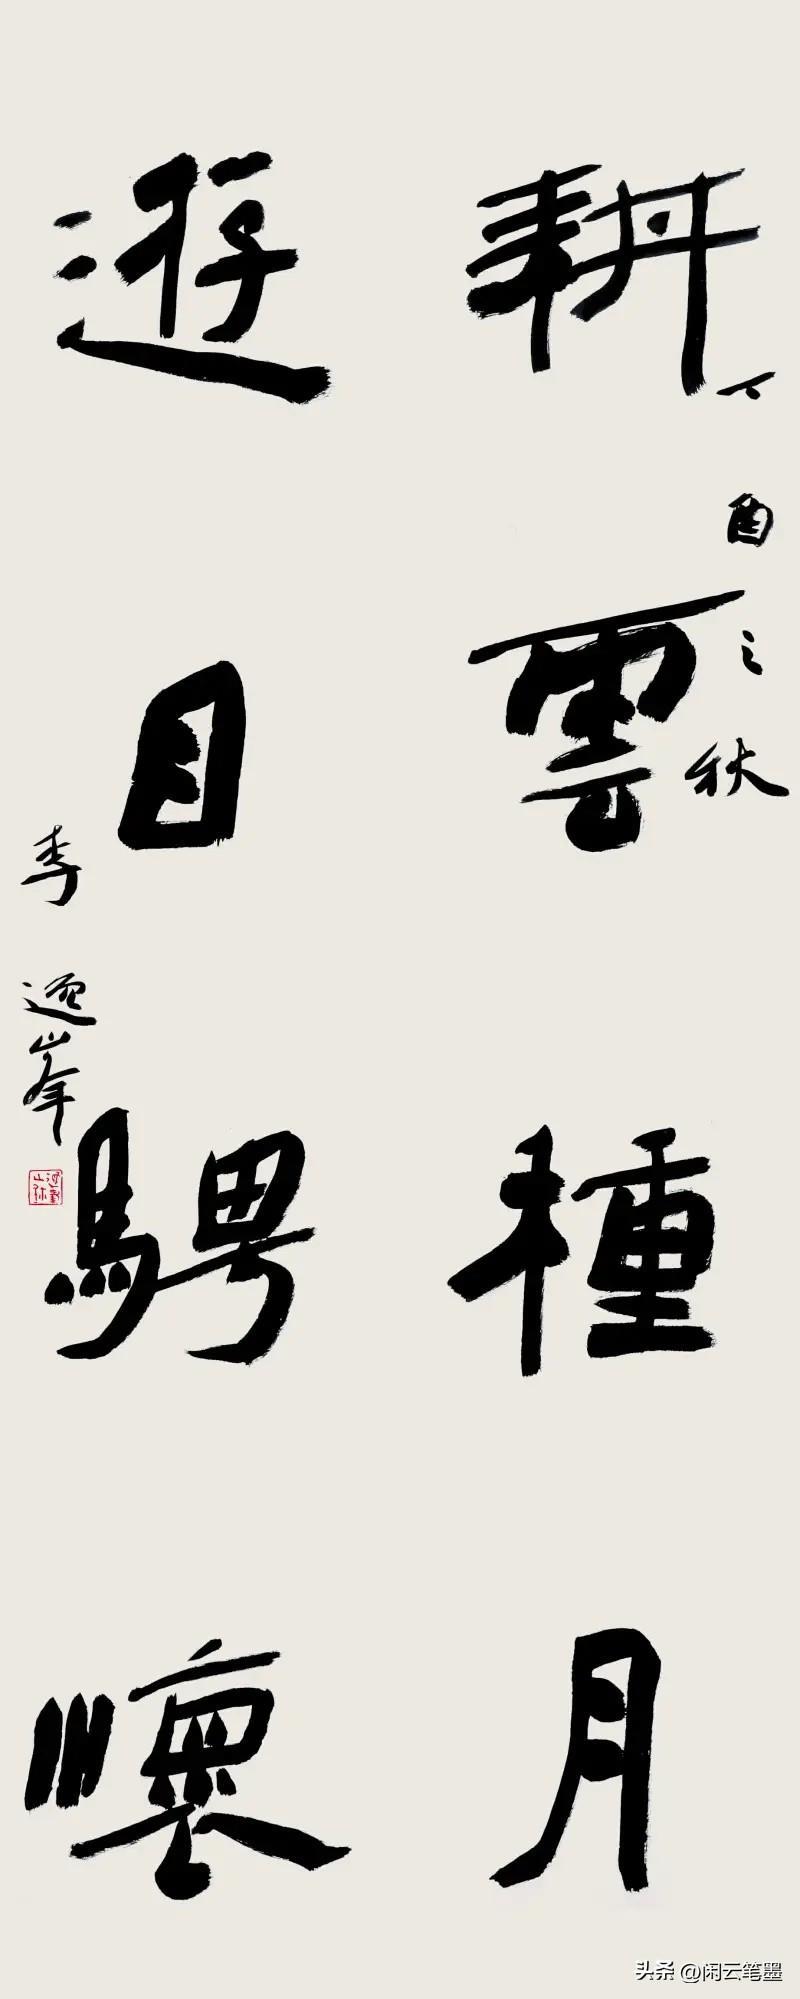 耕雲種月
丁酉之秋
遊目騁懷
李逸峯
头条 @闲云笔墨